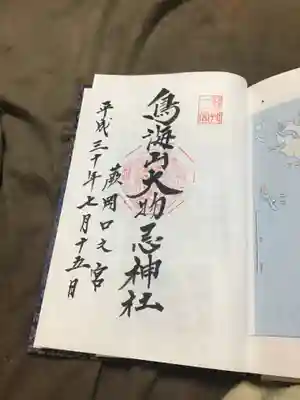 鳥海山大物忌神社
蕨岡口之宮
平成三十年七月十五日